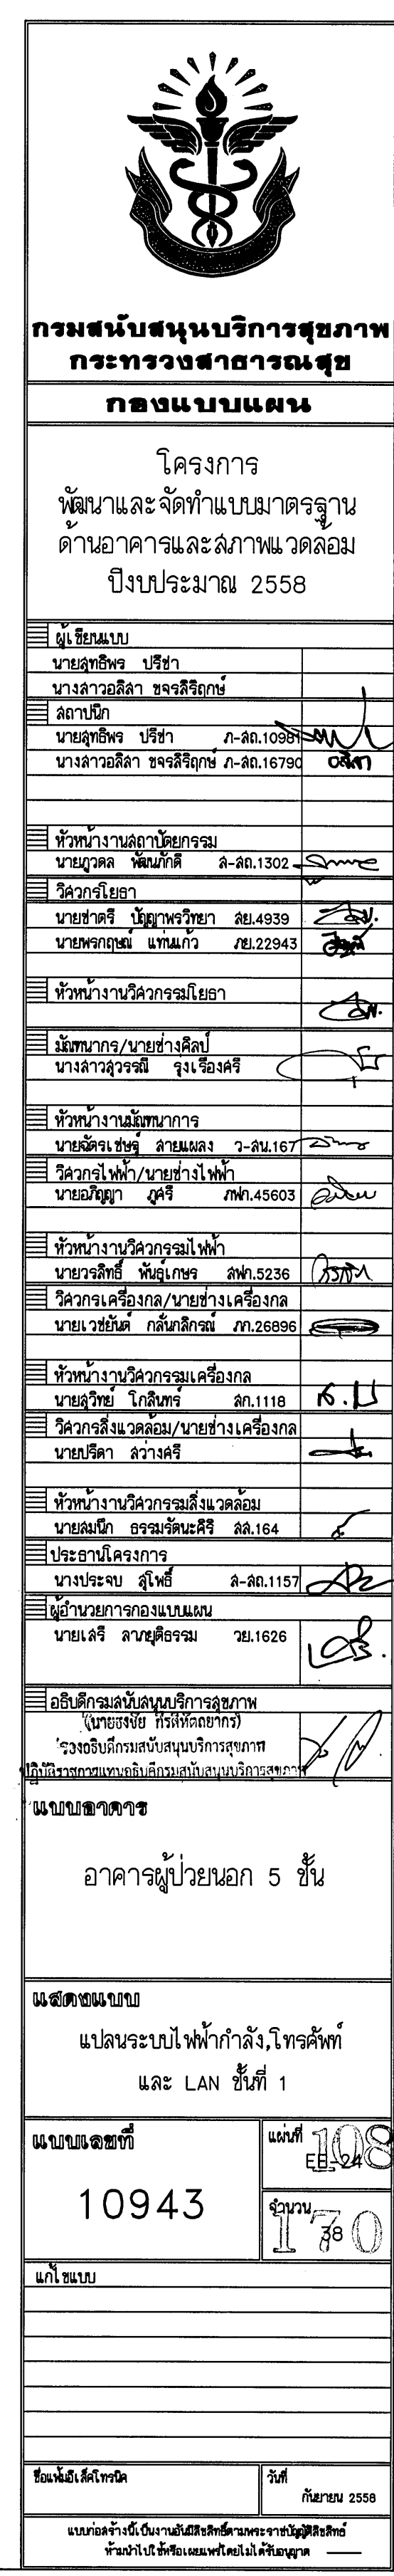 กรมสนับสนุนบริการสุขภาพ
กระทรวงสาธารณสุข
กองแบบแผน
โครงการ
พัฒนาและจัดทำแบบมาตรฐาน
ด้านอาคารและสภาพแวดล้อม
ปีงบประมาณ 2558
ผู้เขียนแบบ
นายสุทธิพร ปรีชา
นางสาวอลิสา ขจรสิริฤกษ์
สถาปนิก
นายสุทธิพร ปรีชา ภ-สถ.10981
นางสาวอลิสา ขจรสิริฤกษ์ ภ-สถ.16790
อลิสา
หัวหน้างานสถาปัตยกรรม
นายภูวดล พัฒนภักดี ส-สถ.1302
วิศวกรโยธา
นายชาตรี ปัญญาพรวิทยา สย.4939
นายพรกฤษณ์ แท่นแก้ว ภย.22943
หัวหน้างานวิศวกรรมโยธา
มัณฑนากร/นายช่างศิลป์
นางสาวสุวรรณี รุ่งเรืองศรี
หัวหน้างานมัณฑนาการ
นายฉัตรเชษฐ์ สายแผลง ว-สน.167
วิศวกรไฟฟ้า/นายช่างไฟฟ้า
นายอภิญญา ภูศรี ภฟก.45603
หัวหน้างานวิศวกรรมไฟฟ้า
นายวรสิทธิ์ พันธุ์เกษร สฟก.5236
วิศวกรเครื่องกล/นายช่างเครื่องกล
นายเวชยันต์ กลั่นกลิกรณ์ ภก.26896
หัวหน้างานวิศวกรรมเครื่องกล
นายสุวิทย์ โกสินทร์ สก.1118
วิศวกรสิ่งแวดล้อม/นายช่างเครื่องกล
นายปรีดา สว่างศรี
หัวหน้างานวิศวกรรมสิ่งแวดล้อม
นายสมนึก ธรรมรัตนะศิริ สส.164
ประธานโครงการ
นางประจบ สุโพธิ์ ส-สถ.1157
ผู้อำนวยการกองแบบแผน
นายเสรี ลาภยุติธรรม วย.1626
อธิบดีกรมสนับสนุนบริการสุขภาพ
(นายธงชัย กีรติหัตถยากร)
รองอธิบดีกรมสนับสนุนบริการสุขภาพ
ปฏิบัติราชการแทนอธิบดีกรมสนับสนุนบริการสุขภาพ
แบบอาคาร
อาคารผู้ป่วยนอก 5 ชั้น
แสดงแบบ
แปลนระบบไฟฟ้ากำลัง,โทรศัพท์
และ LAN ชั้นที่ 1
แบบเลขที่
10943
แผ่นที่
108
EE-24
จำนวน
170
38
แก้ไขแบบ
ชื่อแฟ้มอิเล็คโทรนิค
วันที่
กันยายน 2558
แบบก่อสร้างนี้เป็นงานอันมีลิขสิทธิ์ตามพระราชบัญญัติลิขสิทธิ์
ห้ามนำไปใช้หรือเผยแพร่โดยไม่ได้รับอนุญาต